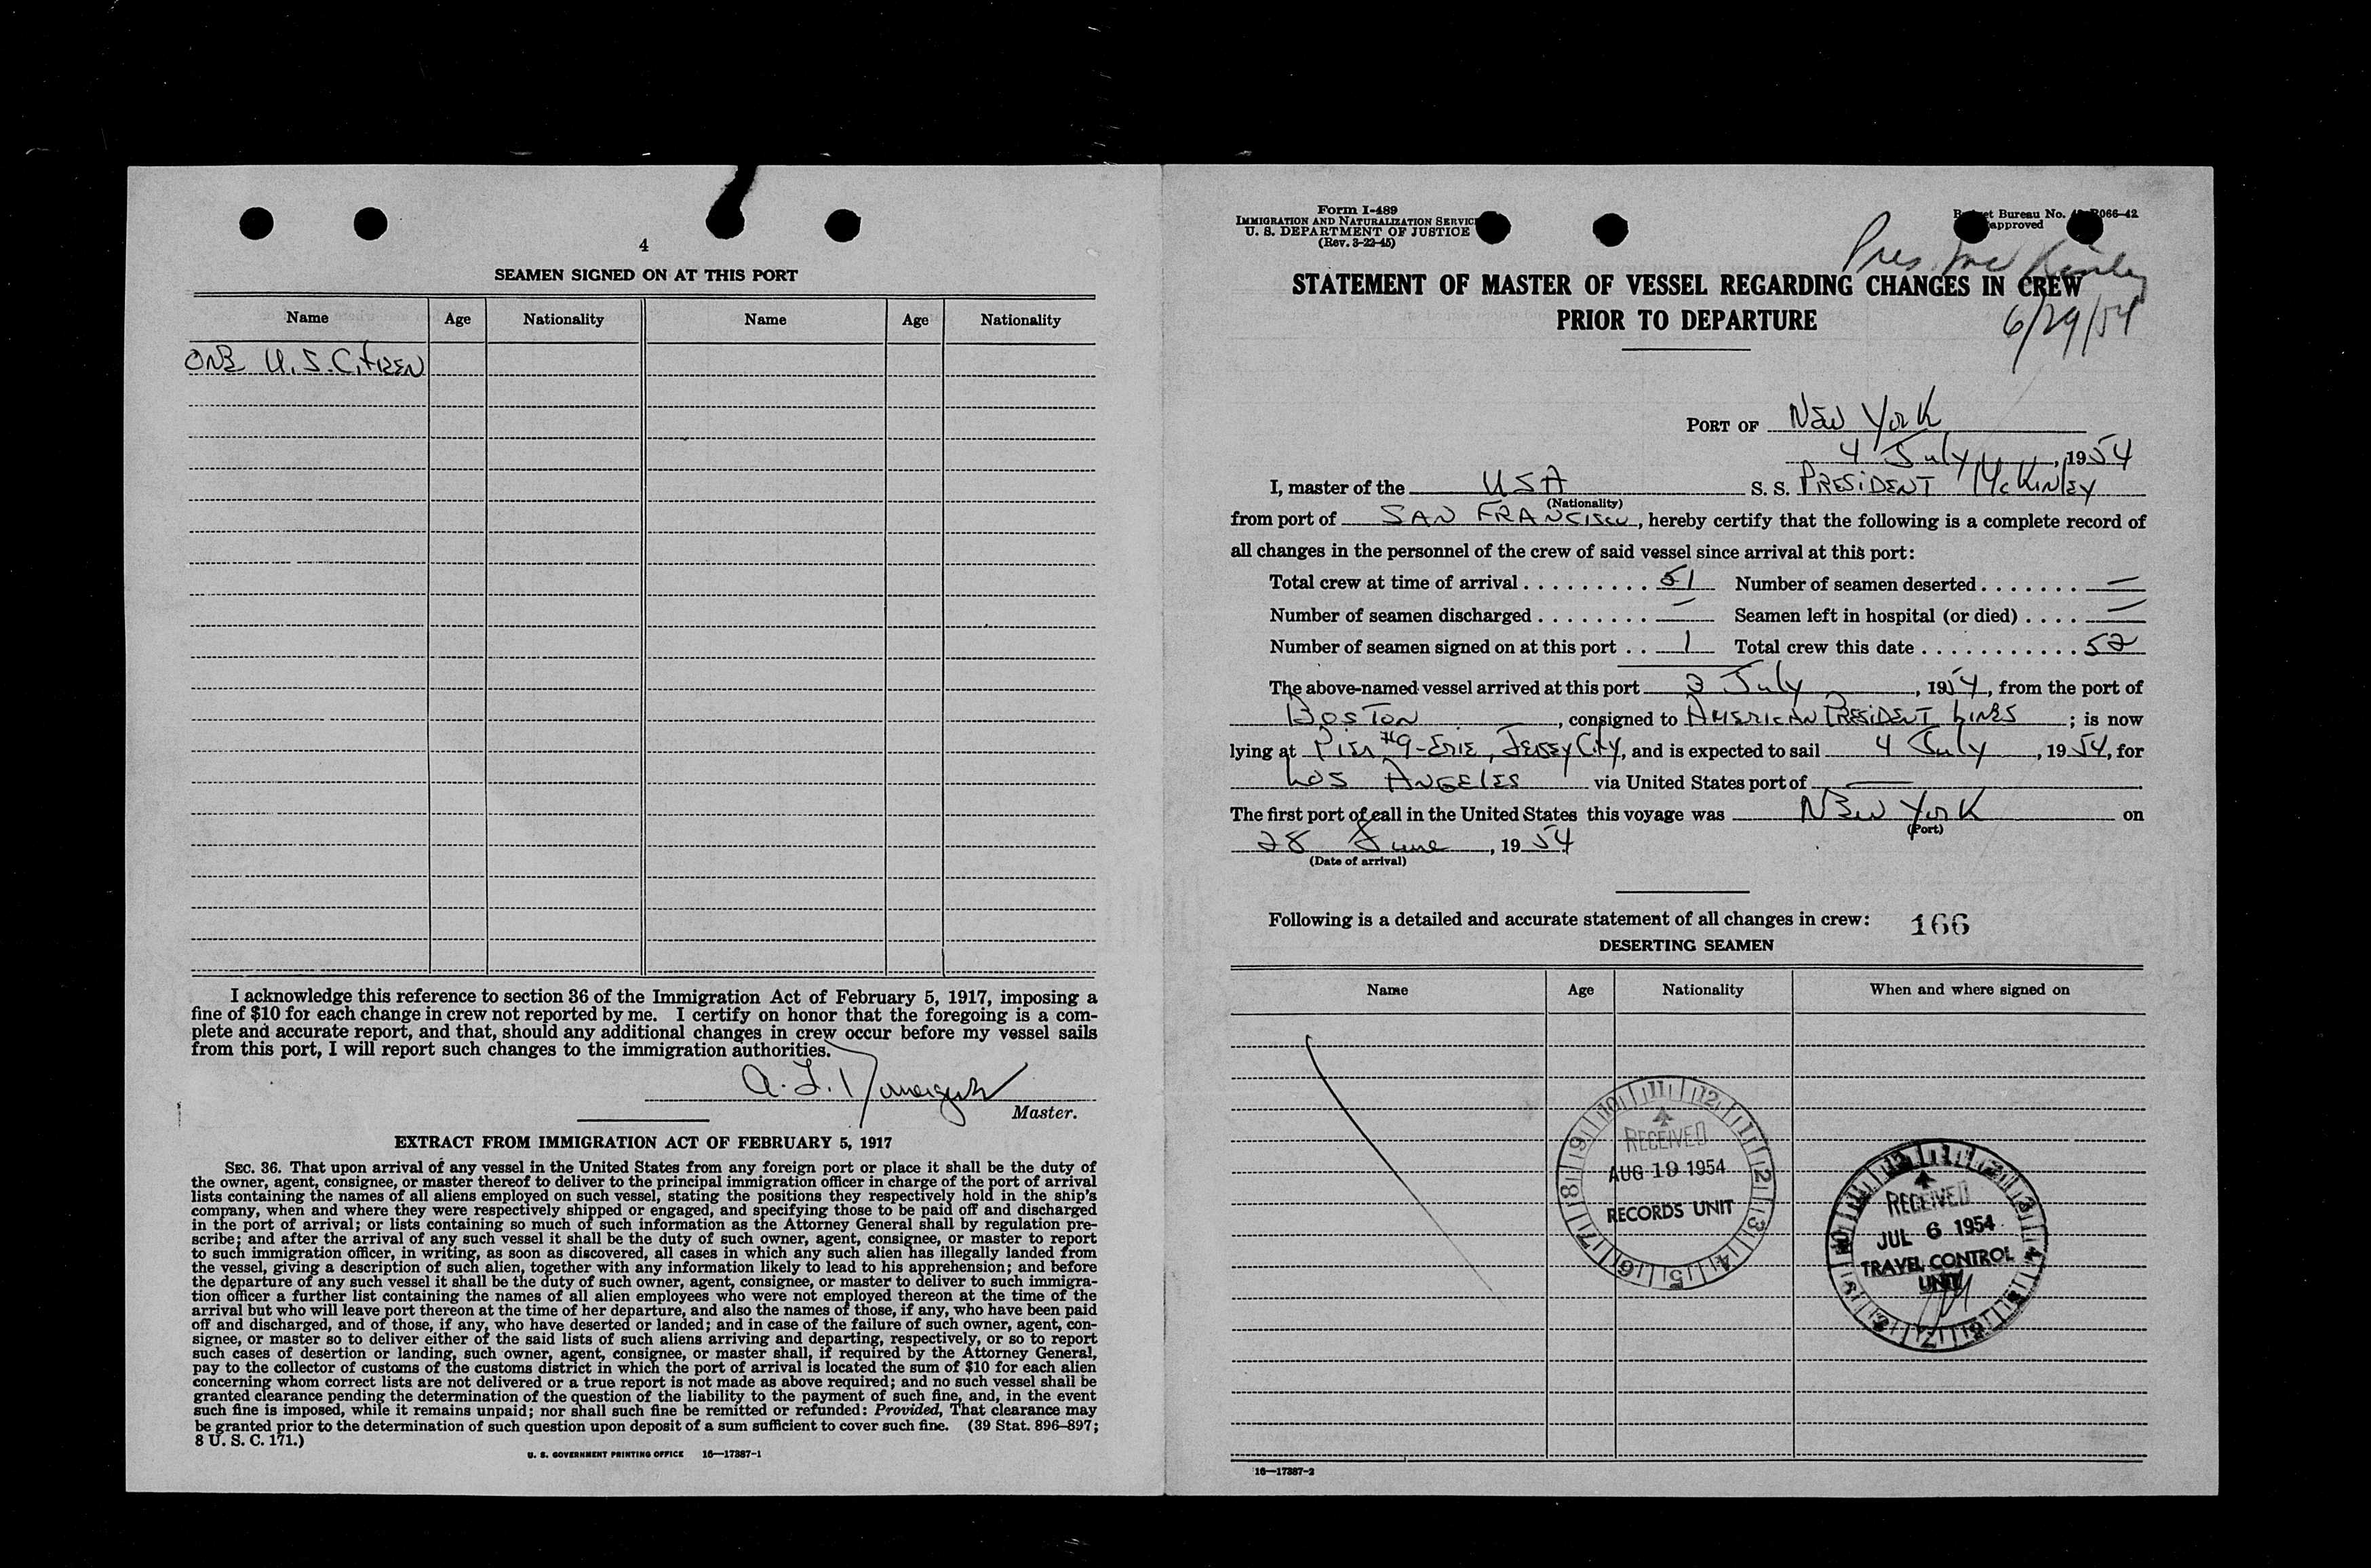 4
SEAMEN SIGNED ON AT THIS PORT
Name Age Nationality Name Age Nationality
ONE U.S. CITIZEN
I acknowledge this reference to section 36 of the Immigration Act of February 5, 1917, imposing a
fine of $10 for each change in crew not reported by me. I certify on honor that the foregoing is a com-
plete and accurate report, and that, should any additional changes in crew occur before my vessel sails
from this port, I will report such changes to the immigration authorities.
A. L.
Master.
EXTRACT FROM IMMIGRATION ACT OF FEBRUARY 5, 1917
SEC. 36. That upon arrival of any vessel in the United States from any foreign port or place it shall be the duty of
the owner, agent, consignee, or master thereof to deliver to the principal immigration officer in charge of the port of arrival
lists containing the names of all aliens employed on such vessel, stating the positions they respectively hold in the ship's
company, when and where they were respectively shipped or engaged, and specifying those to be paid off and discharged
in the port of arrival; or lists containing so much of such information as the Attorney General shall by regulation pre-
scribe; and after the arrival of any such vessel it shall be the duty of such owner, agent, consignee, or master to report
to such immigration officer, in writing, as soon as discovered, all cases in which any such alien has illegally landed from
the vessel, giving a description of such alien, together with any information likely to lead to his apprehension; and before
the departure of any such vessel it shall be the duty of such owner, agent, consignee, or master to deliver to such immigra-
tion officer a further list containing the names of all alien employees who were not employed thereon at the time of the
arrival but who will leave port thereon at the time of her departure, and also the names of those, if any, who have been paid
off and discharged, and of those, if any, who have deserted or landed; and in case of the failure of such owner, agent, con-
signee, or master so to deliver either of the said lists of such aliens arriving and departing, respectively, or so to report
such cases of desertion or landing, such owner, agent, consignee, or master shall, if required by the Attorney General,
pay to the collector of customs of the customs district in which the port of arrival is located the sum of $10 for each alien
concerning whom correct lists are not delivered or a true report is not made as above required; and no such vessel shall be
granted clearance pending the determination of the question of the liability to the payment of such fine, and, in the event
such fine is imposed, while it remains unpaid; nor shall such fine be remitted or refunded: Provided, That clearance may
be granted prior to the determination of such question upon deposit of a sum sufficient to cover such fine. (39 Stat. 896–897;
8 U. S. C. 171.)
U. S. GOVERNMENT PRINTING OFFICE 16—17387-1
Form I-489
IMMIGRATION AND NATURALIZATION SERVICE
U. S. DEPARTMENT OF JUSTICE
(Rev. 3-22-45)
Bureau No. R066-42
approved
Pres. McKinley
6/29/54
STATEMENT OF MASTER OF VESSEL REGARDING CHANGES IN CREW
PRIOR TO DEPARTURE
PORT OF New York
4 July, 1954
I, master of the USA S. S. PRESIDENT McKINLEY
(Nationality)
from port of SAN FRANCISCO, hereby certify that the following is a complete record of
all changes in the personnel of the crew of said vessel since arrival at this port:
Total crew at time of arrival . . . . . . . . . 51 Number of seamen deserted . . . . . . . —
Number of seamen discharged . . . . . . . . — Seamen left in hospital (or died) . . . . —
Number of seamen signed on at this port . . 1 Total crew this date . . . . . . . . . . . 52
The above-named vessel arrived at this port 3 July, 1954, from the port of
BOSTON, consigned to AMERICAN PRESIDENT LINES; is now
lying at Pier #9-Erie, Jersey City, and is expected to sail 4 July, 1954, for
LOS ANGELES via United States port of —
The first port of call in the United States this voyage was NEW YORK on
(Port)
28 June, 1954
(Date of arrival)
Following is a detailed and accurate statement of all changes in crew: 166
DESERTING SEAMEN
Name Age Nationality When and where signed on
11 12 1 2 3 4 5 6 7 8 9 10
RECEIVED
AUG 19 1954
RECORDS UNIT
RECEIVED
JUL 6 1954
TRAVEL CONTROL
UNIT
16—17387-2